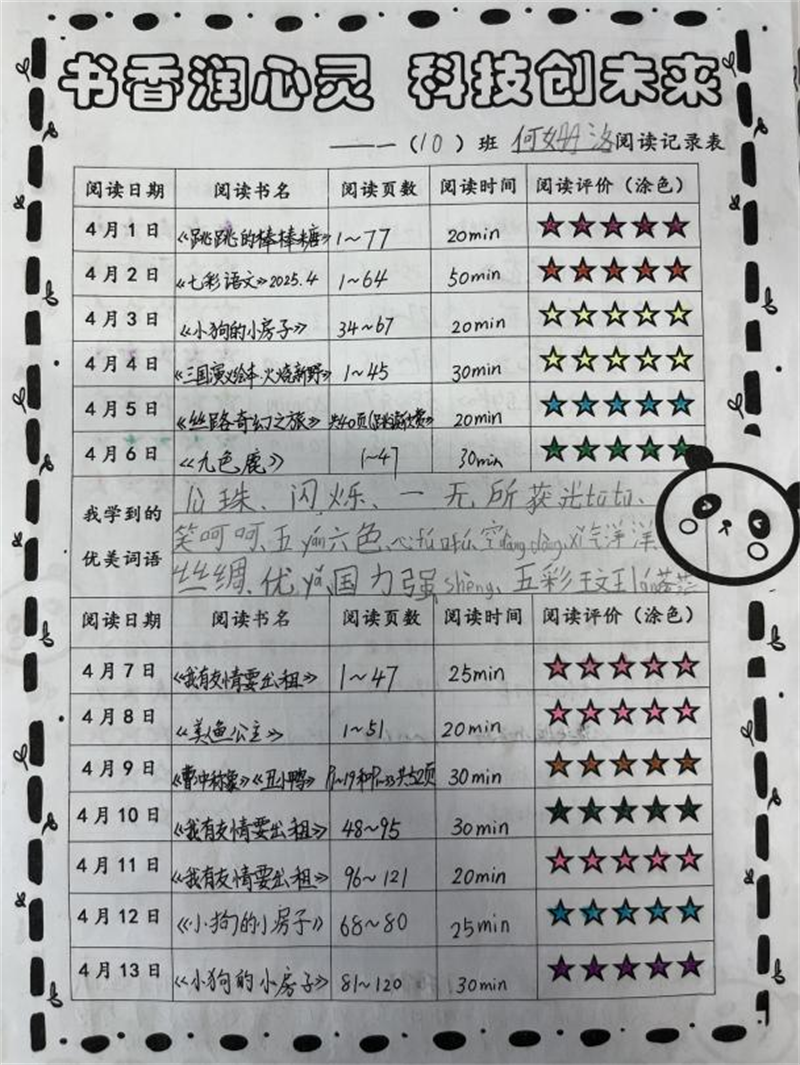 书香润心灵 科技创未来
——一（10）班 何姗洛 阅读记录表
阅读日期 阅读书名 阅读页数 阅读时间 阅读评价（涂色）
4月1日 《跳跳的棒棒糖》 1~77 20min
4月2日 《七彩语文》2025.4 1~64 50min
4月3日 《小狗的小房子》 34~67 20min
4月4日 《三国演义绘本·火烧新野》 1~45 30min
4月5日 《丝路奇幻之旅》 共40页 20min
4月6日 《九色鹿》 1~47 30min
我学到的优美词语
珠、闪烁、一无所获、光tūtū、
笑呵呵、五yán六色、空dàngdàng、xǐ气洋洋
丝绸、优yǎ、国力强shèng、五彩
阅读日期 阅读书名 阅读页数 阅读时间 阅读评价（涂色）
4月7日 《我有友情要出租》 1~47 25min
4月8日 《美鱼公主》 1~51 20min
4月9日 《曹冲称象》《丑小鸭》 共52页 30min
4月10日 《我有友情要出租》 48~95 30min
4月11日 《我有友情要出租》 96~121 20min
4月12日 《小狗的小房子》 68~80 25min
4月13日 《小狗的小房子》 81~120 30min